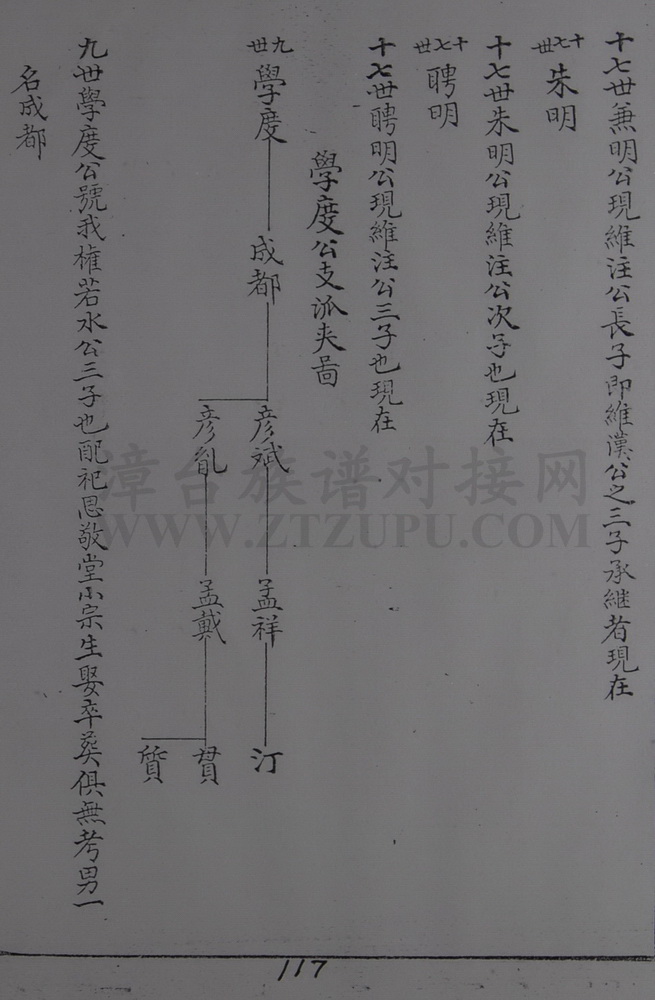 十七世兼明公現維注公長子即維漢公之三子承継者現在
十七世
朱明
十七世朱明公現維注公次子也現在
十七世
聘明
十七世聘明公現維注公三子也現在
學度公支派夹啚
九世
學度
成都
彦斌
彦胤
孟祥
孟戴
汀
貫
質
九世學度公號我權若水公三子也配祀思敬堂小宗生娶卒葬俱無考男一
名成都
漳台族谱对接网
WWW.ZTZUPU.COM
117